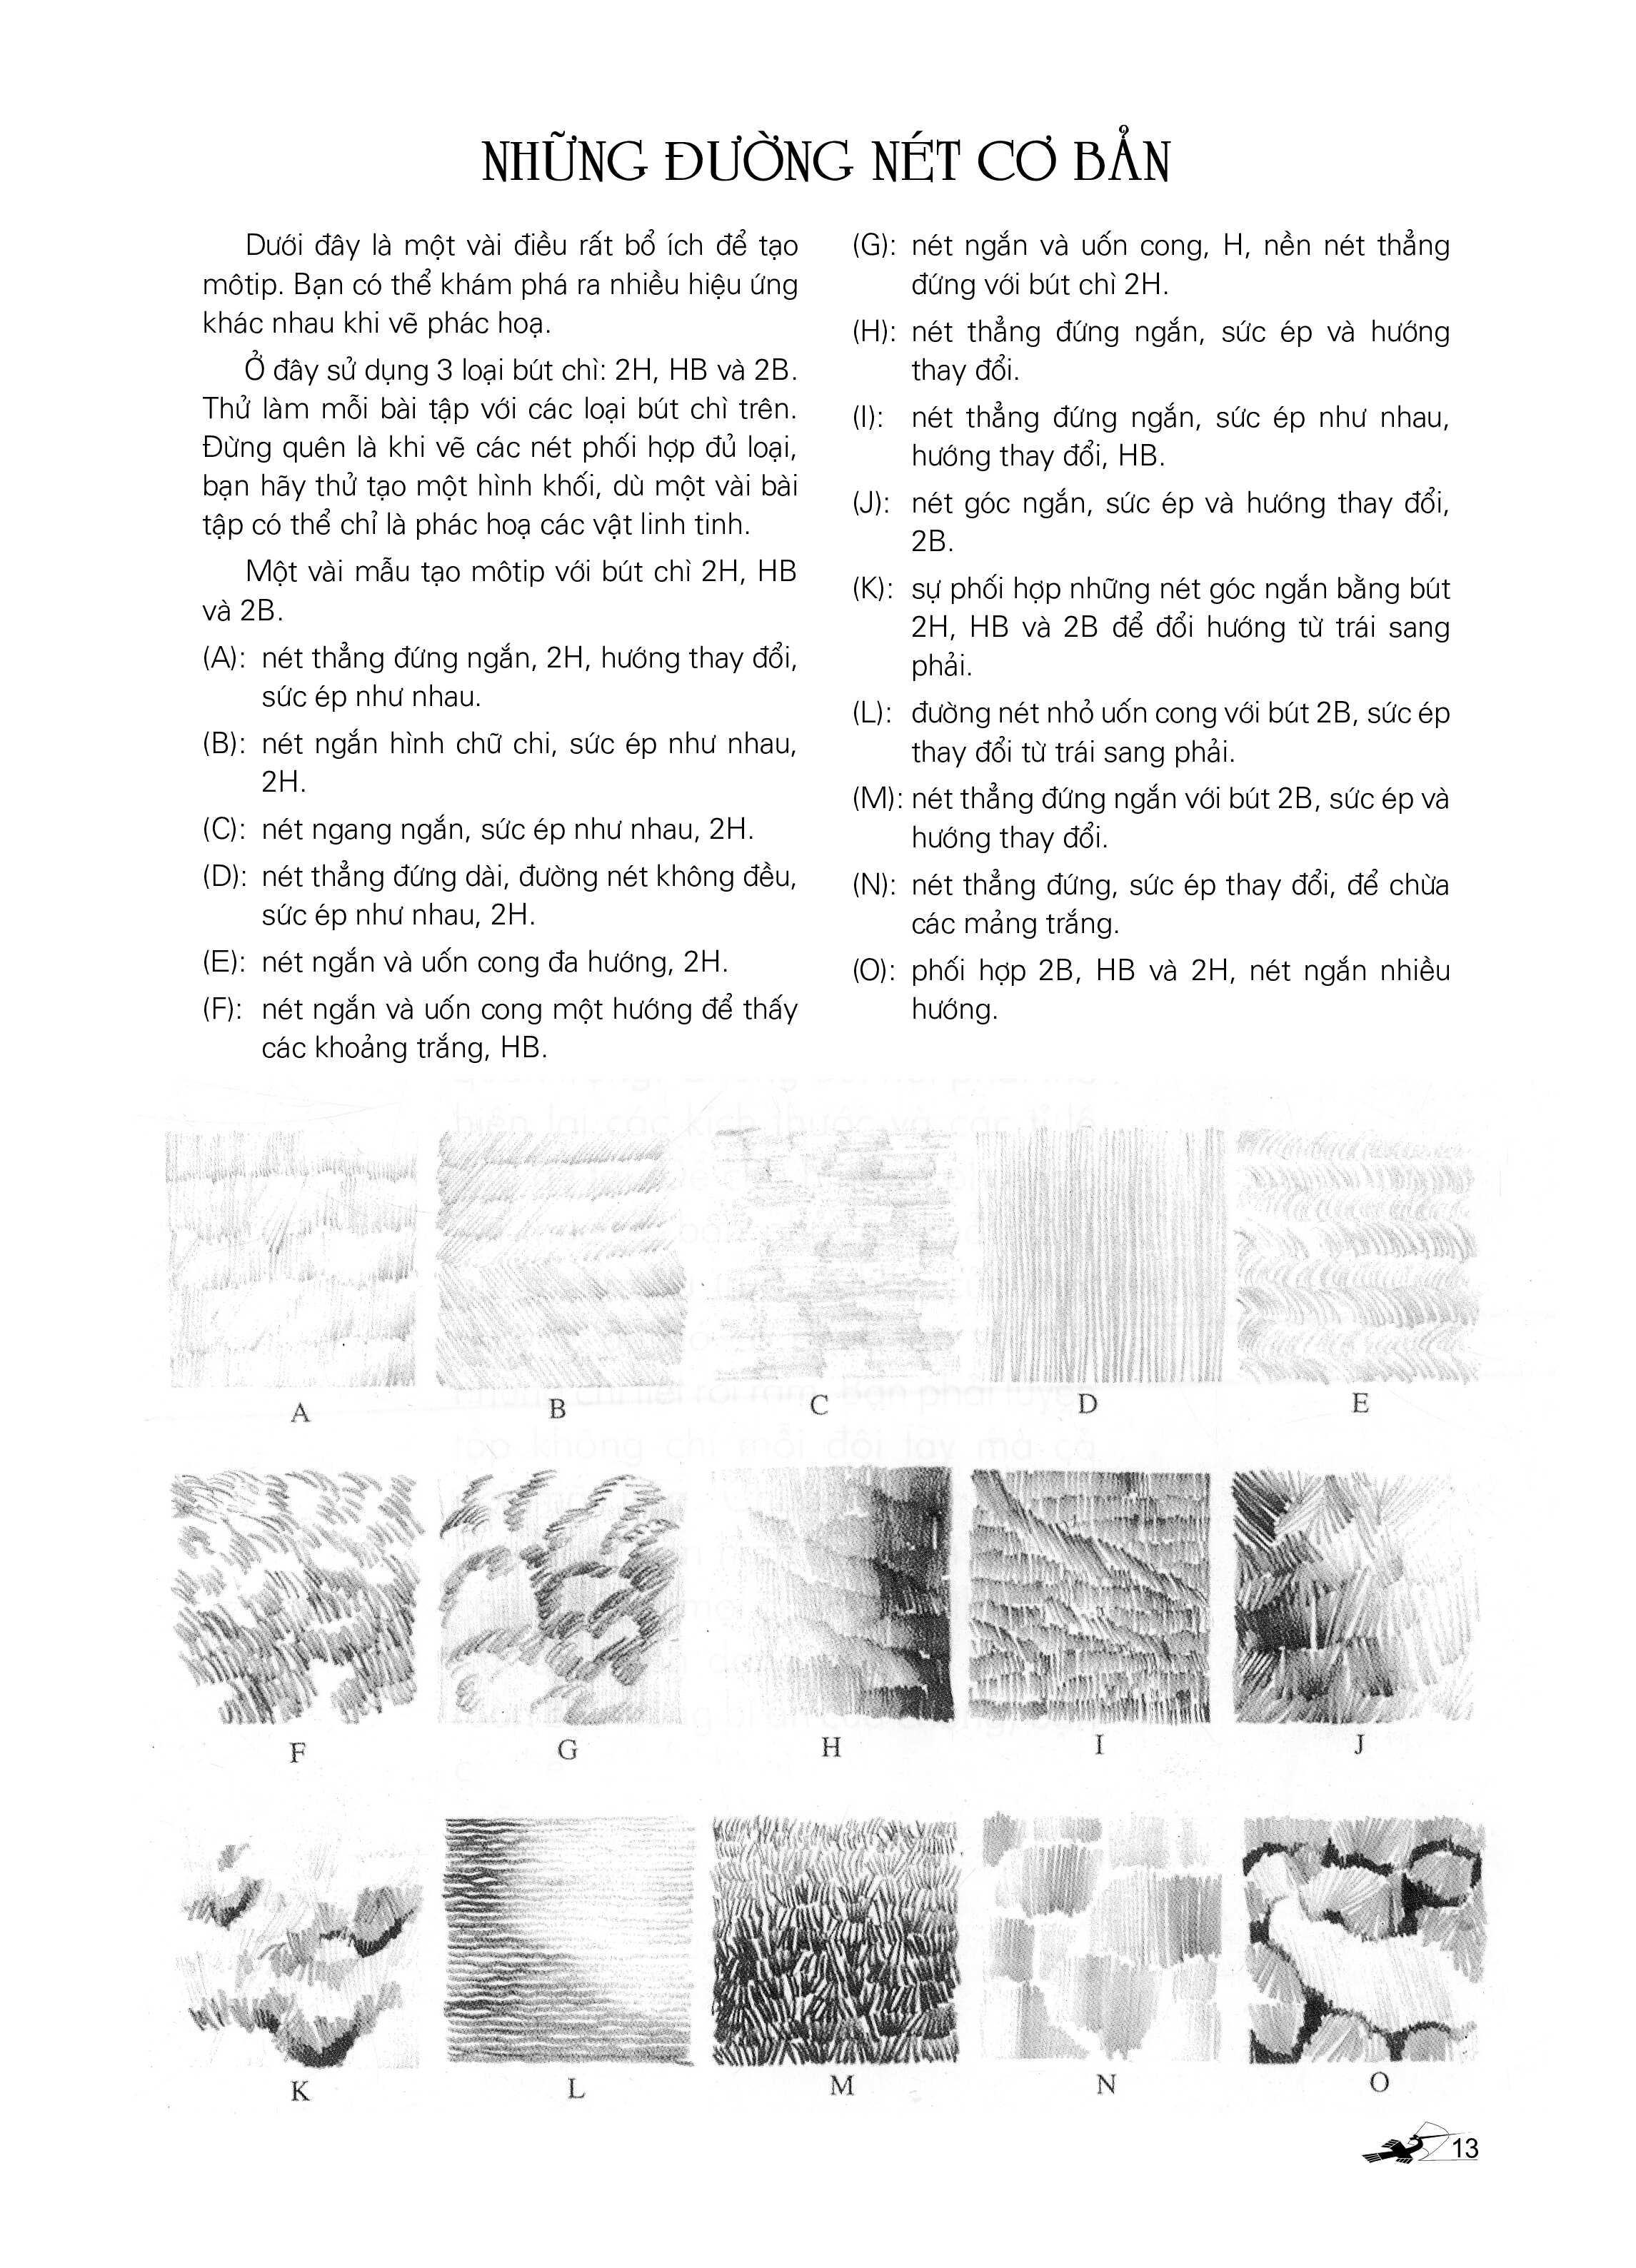 NHỮNG ĐƯỜNG NÉT CƠ BẢN
Dưới đây là một vài điều rất bổ ích để tạo
môtip. Bạn có thể khám phá ra nhiều hiệu ứng
khác nhau khi vẽ phác hoạ.
Ở đây sử dụng 3 loại bút chì: 2H, HB và 2B.
Thử làm mỗi bài tập với các loại bút chì trên.
Đừng quên là khi vẽ các nét phối hợp đủ loại,
bạn hãy thử tạo một hình khối, dù một vài bài
tập có thể chỉ là phác hoạ các vật linh tinh.
Một vài mẫu tạo môtip với bút chì 2H, HB
và 2B.
(A): nét thẳng đứng ngắn, 2H, hướng thay đổi,
sức ép như nhau.
(B): nét ngắn hình chữ chi, sức ép như nhau,
2H.
(C): nét ngang ngắn, sức ép như nhau, 2H.
(D): nét thẳng đứng dài, đường nét không đều,
sức ép như nhau, 2H.
(E): nét ngắn và uốn cong đa hướng, 2H.
(F): nét ngắn và uốn cong một hướng để thấy
các khoảng trắng, HB.
(G): nét ngắn và uốn cong, H, nền nét thẳng
đứng với bút chì 2H.
(H): nét thẳng đứng ngắn, sức ép và hướng
thay đổi.
(I): nét thẳng đứng ngắn, sức ép như nhau,
hướng thay đổi, HB.
(J): nét góc ngắn, sức ép và hướng thay đổi,
2B.
(K): sự phối hợp những nét góc ngắn bằng bút
2H, HB và 2B để đổi hướng từ trái sang
phải.
(L): đường nét nhỏ uốn cong với bút 2B, sức ép
thay đổi từ trái sang phải.
(M): nét thẳng đứng ngắn với bút 2B, sức ép và
hướng thay đổi.
(N): nét thẳng đứng, sức ép thay đổi, để chừa
các mảng trắng.
(O): phối hợp 2B, HB và 2H, nét ngắn nhiều
hướng.
A B C D E
F G H I J
K L M N O
13